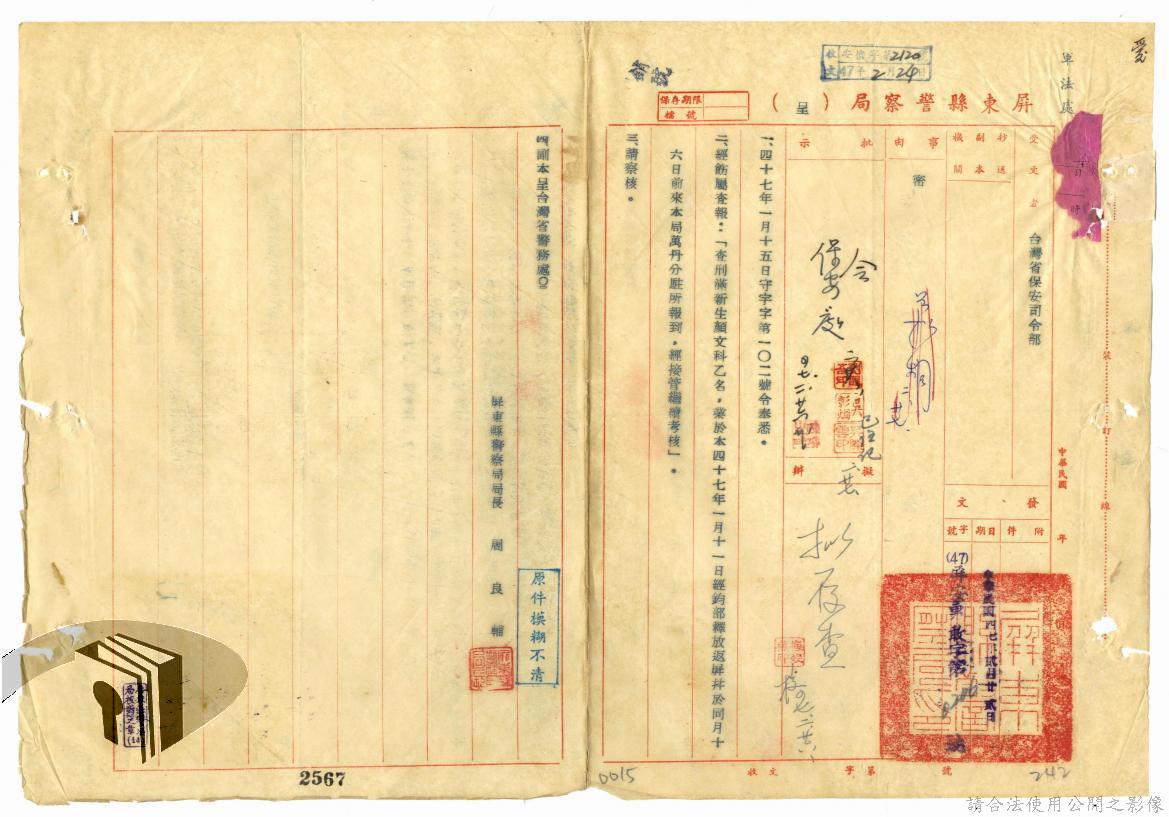 軍法處
收文 安檢字第2120
47年2月24日
屏東縣警察局（呈）
保存期限
檔號
受文者
台灣省保安司令部
抄送
副本
機關
事由
密
批示
令
保安處
擬辦
擬存查
中華民國 年
發文
附件
日期
字號
中華民國四七年貳月廿貳日
(47)
一、四十七年一月十五日守字字第一〇二號令奉悉。
二、經飭屬查報：「查刑滿新生顏文科乙名，業於本四十七年一月十一日經鈞部釋放返屏并於同月十
六日前來本局萬丹分駐所報到，經接管繼續考核」。
三、請察核。
四副本呈台灣省警務處〇。
屏東縣警察局局長 周良輔
原件模糊不清
裝訂線
收文 字第 號
2567
0015
242
請合法使用公開之影像